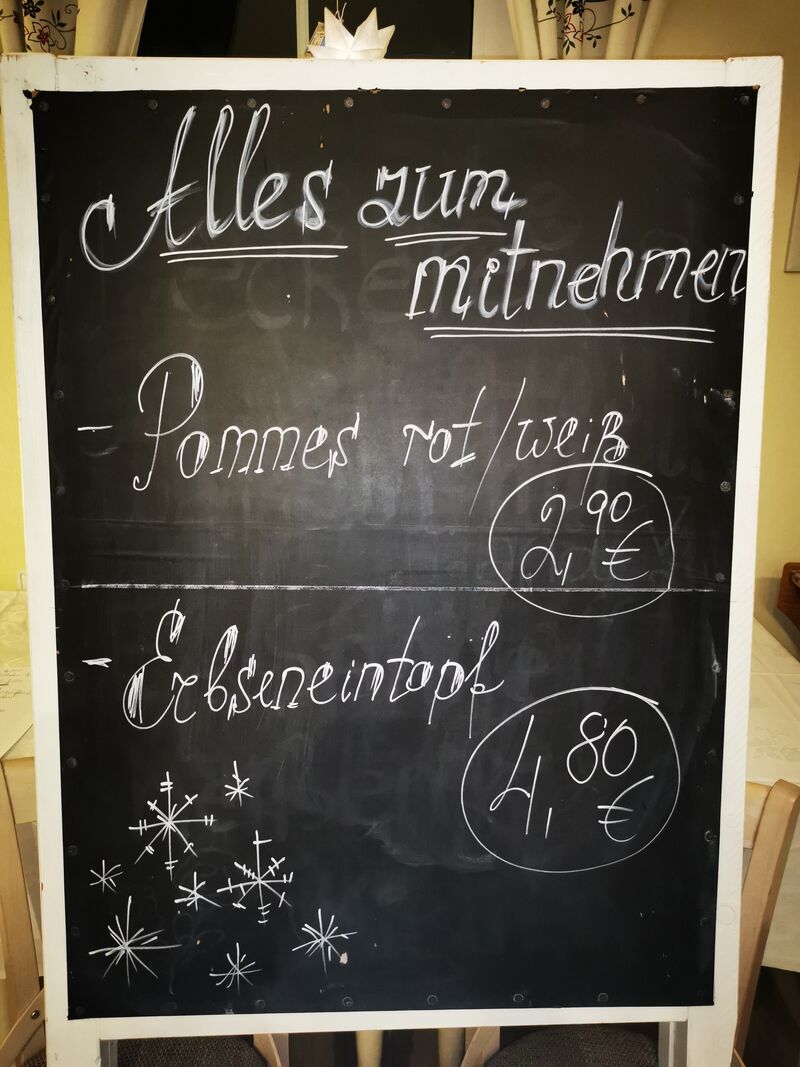 Alles zum
mitnehmen
- Pommes rot/weiß
2,90 €
- Erbseneintopf
4,80 €